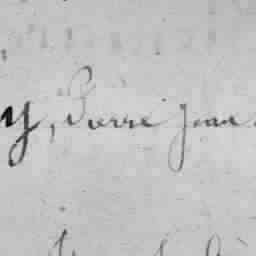 y, Pierre Jean